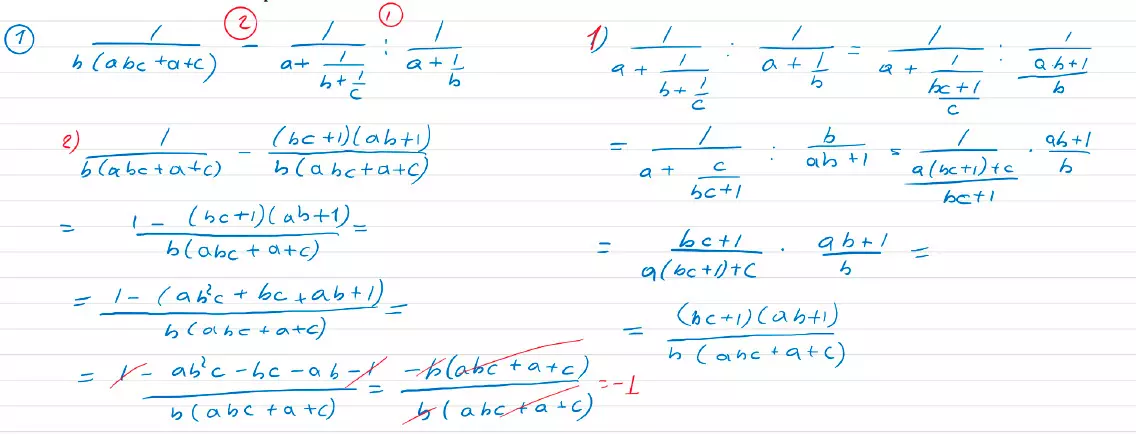 ① 1/(b(abc+a+c)) ② − 1/(a+1/(b+1/c)) ① : 1/(a+1/b)
2) 1/(b(abc+a+c)) − (bc+1)(ab+1)/(b(abc+a+c))
= (1−(bc+1)(ab+1))/(b(abc+a+c)) =
= (1−(ab²c+bc+ab+1))/(b(abc+a+c)) =
= (1−ab²c−bc−ab−1)/(b(abc+a+c)) = −b(abc+a+c)/(b(abc+a+c)) = −1
1) 1/(a+1/(b+1/c)) : 1/(a+1/b) = 1/(a+1/((bc+1)/c)) : 1/((ab+1)/b)
= 1/(a+c/(bc+1)) : b/(ab+1) = 1/((a(bc+1)+c)/(bc+1)) · (ab+1)/b
= (bc+1)/(a(bc+1)+c) · (ab+1)/b =
= (bc+1)(ab+1)/(b(abc+a+c))